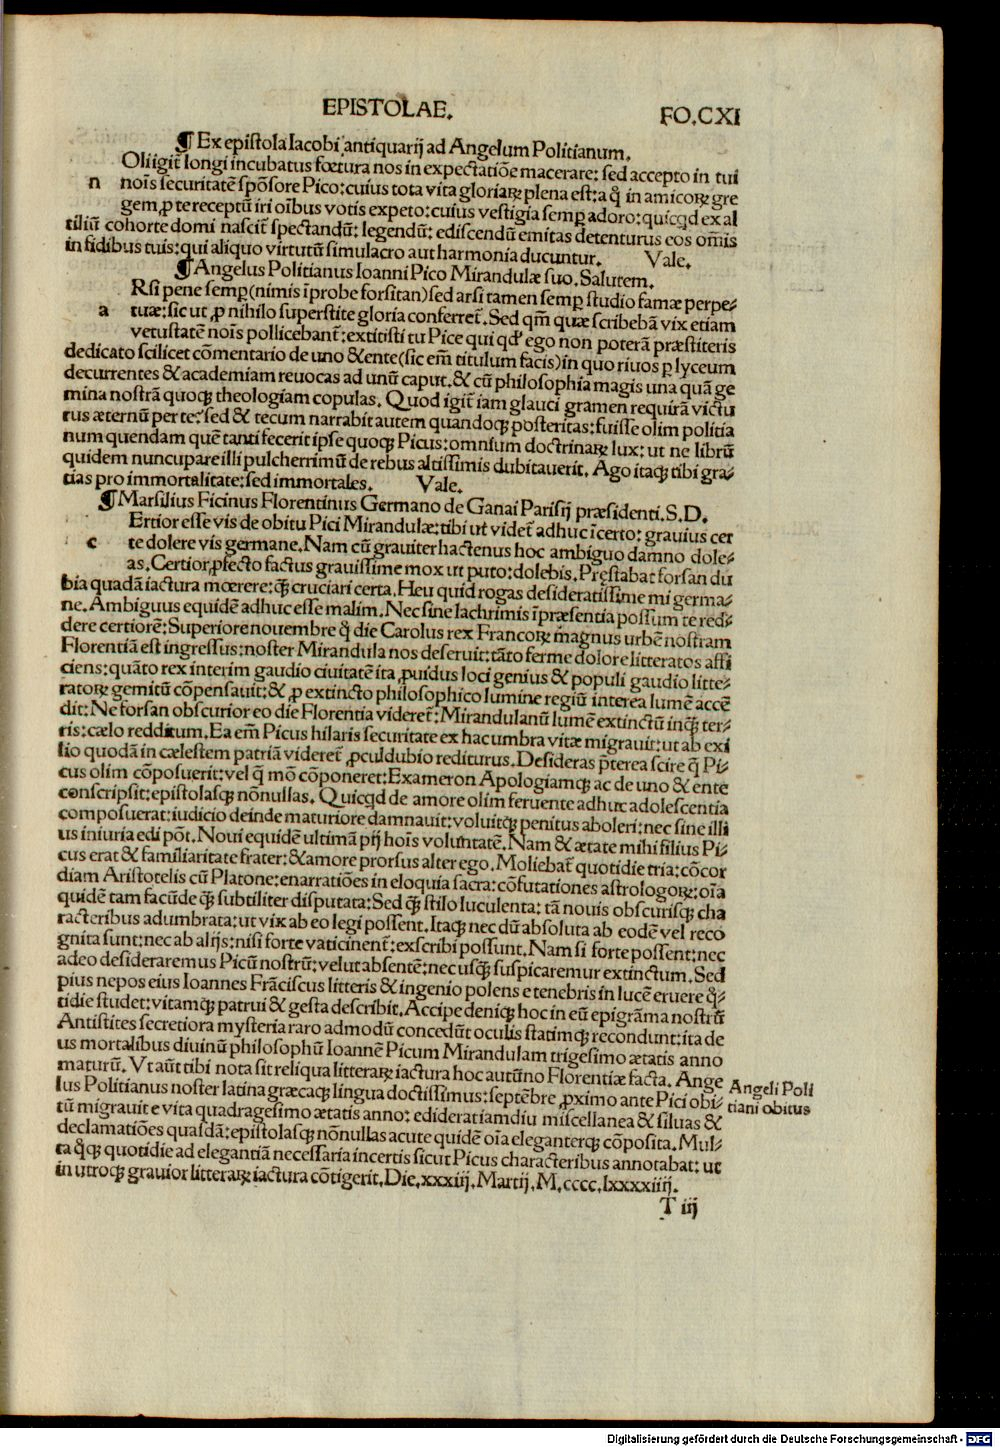 EPISTOLAE. FO.CXI
¶ Ex epistola Iacobi antiquarij ad Angelum Politianum.
Oli igit̃ longi incubatus fœtura nos in expectatiõe macerare: sed accepto in tui
n noĩs securitatẽ spõsore Pico: cuius tota vita gloriaꝝ plena est: a q̃ in amicoꝝ gre
gem ꝓ te receptũ iri oĩbus votis expeto: cuius vestigia semp̱ adoro: quicqd ex al
tiliũ cohorte domi nascit̃ spectandũ: legendũ: ediscendũ emitas detenturus eos om̃is
in fidibus tuis: qui aliquo virtutũ simulacro aut harmonia ducuntur. Vale.
¶ Angelus Politianus Ioanni Pico Mirandulæ suo. Salutem.
Rsi pene semp̱ (nimis ĩprobe forsitan) sed arsi tamen semp̱ studio famæ perpe⸗
a tuæ: sic ut ꝓ nihilo superstite gloria conferret̃. Sed qm̃ quæ scribebã vix etiam
vetustatẽ noĩs pollicebant̃: extitisti tu Pice qui qđ ego non poterã præstiteris
dedicato scilicet cõmentario de uno & ente (sic em̃ titulum facis) in quo riuos p̱ lyceum
decurrentes & academiam reuocas ad unũ caput. & cũ philosophia magis una quã ge
mina nostrã quoqꝫ theologiam copulas. Quod igit̃ iam glauci gramen requirã victu
rus æternũ per te: sed & tecum narrabit autem quandoqꝫ posteritas: fuisse olim politia
num quendam quẽ tanti fecerit ipse quoqꝫ Picus: omnium doctrinaꝝ lux: ut ne librũ
quidem nuncupare illi pulcherrimũ de rebus altissimis dubitauerit. Ago itaqꝫ tibi gra⸗
tias pro immortalitate: sed immortales. Vale.
¶ Marsilius Ficinus Florentinus Germano de Ganai Parisij præsidenti. S.D.
Ertior esse vis de obitu Pici Mirandulæ: tibi ut videt̃ adhuc ĩcerto: grauius cer
c te dolere vis germane. Nam cũ grauiter hactenus hoc ambiguo damno dole⸗
as. Certior ꝓfecto factus grauissime mox ut puto: dolebis. Pręstabat forsan du
bia quadã iactura mœrere: qꝫ cruciari certa. Heu quid rogas desideratissime mi germa⸗
ne. Ambiguus equidẽ adhuc esse malim. Nec sine lachrimis ĩpræsentia possum te red⸗
dere certiorẽ: Superiore nouembre q̃ die Carolus rex Francoꝝ magnus urbẽ nostram
Florentiã est ingressus: noster Mirandula nos deseruit: tãto ferme dolore litteratos affi
ciens: quãto rex interim gaudio ciuitatẽ ita ꝓuidus loci genius & populi gaudio litte⸗
ratoꝝ gemitũ cõpensauit: & ꝓ extincto philosophico lumine regiũ interea lumẽ accẽ
dit: Ne forsan obscurior eo die Florentia videret̃: Mirandulanũ lumẽ extinctũ inqꝫ ter⸗
ris: cælo redditum. Ea em̃ Picus hilaris securitate ex hac umbra vitæ migrauit: ut ab exi
lio quodã in cælestem patriã videret̃ ꝓculdubio rediturus. Desideras p̱terea scire q̃ Pi⸗
cus olim cõposuerit: vel q̃ mõ cõponeret: Exameron Apologiamqꝫ ac de uno & ente
conscripsit: epistolasqꝫ nõnullas. Quicqd de amore olim feruente adhuc adolescentia
composuerat: iudicio deinde maturiore damnauit: voluitqꝫ penitus aboleri: nec sine illi
us iniuria edi põt. Noui equidẽ ultimã pij hoĩs voluntatẽ. Nam & ætate mihi filius Pi⸗
cus erat & familiaritate frater: & amore prorsus alter ego. Moliebat̃ quotidie tria: cõcor
diam Aristotelis cũ Platone: enarratiões in eloquia sacra: cõfutationes astrologoꝝ: oĩa
quidẽ tam facũde qꝫ subtiliter disputata: Sed qꝫ stilo luculenta: tã nouis obscurisqꝫ cha
racteribus adumbrata: ut vix ab eo legi possent. Itaqꝫ nec dũ absoluta ab eodẽ vel reco
gnita sunt: nec ab alijs: nisi forte vaticinent̃: exscribi possunt. Nam si forte possent: nec
adeo desideraremus Picũ nostrũ: velut absentẽ: nec usqꝫ suspicaremur extinctum. Sed
pius nepos eius Ioannes Frãciscus litteris & ingenio polens e tenebris in lucẽ eruere q̃⸗
tidie studet: vitamqꝫ patrui & gesta describit. Accipe deniqꝫ hoc in eũ epigrãma nostrũ
Antistites secretiora mysteria raro admodũ concedũt oculis statimqꝫ recondunt: ita de
us mortalibus diuinũ philosophũ Ioannẽ Picum Mirandulam trigesimo ætatis anno
maturũ. Vt aũt tibi nota sit reliqua litteraꝝ iactura hoc autũno Florentiæ facta. Ange
lus Politianus noster latina græcaqꝫ lingua doctissimus: septẽbre ꝓximo ante Pici obi⸗
tũ migrauit e vita quadragesimo ætatis anno: ediderat iamdiu miscellanea & siluas &
declamatiões quasdã: epistolasqꝫ nõnullas acute quidẽ oĩa eleganterqꝫ cõposita. Mul⸗
ta q̃qꝫ quotidie ad elegantiã necessaria incertis sicut Picus characteribus annotabat: ut
in utroqꝫ grauior litteraꝝ iactura cõtigerit. Die. xxxiij. Martij. M.cccc.lxxxxiiij.
Angeli Poli
tiani obitus
T iij
Digitalisierung gefördert durch die Deutsche Forschungsgemeinschaft - DFG